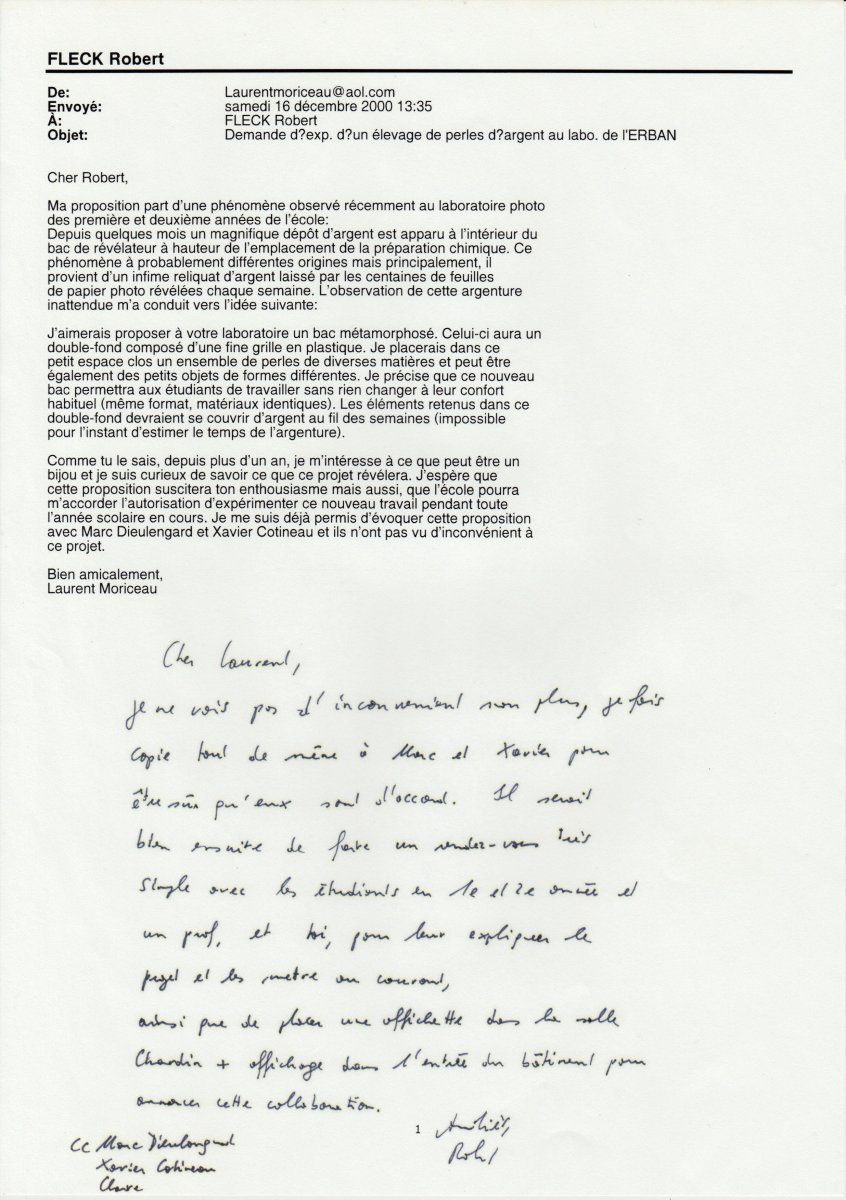 FLECK Robert
De: Laurentmoriceau@aol.com
Envoyé: samedi 16 décembre 2000 13:35
À: FLECK Robert
Objet: Demande d?exp. d?un élevage de perles d?argent au labo. de l'ERBAN
Cher Robert,
Ma proposition part d'une phénomène observé récemment au laboratoire photo
des première et deuxième années de l'école:
Depuis quelques mois un magnifique dépôt d'argent est apparu à l'intérieur du
bac de révélateur à hauteur de l'emplacement de la préparation chimique. Ce
phénomène à probablement différentes origines mais principalement, il
provient d'un infime reliquat d'argent laissé par les centaines de feuilles
de papier photo révélées chaque semaine. L'observation de cette argenture
inattendue m'a conduit vers l'idée suivante:
J'aimerais proposer à votre laboratoire un bac métamorphosé. Celui-ci aura un
double-fond composé d'une fine grille en plastique. Je placerais dans ce
petit espace clos un ensemble de perles de diverses matières et peut être
également des petits objets de formes différentes. Je précise que ce nouveau
bac permettra aux étudiants de travailler sans rien changer à leur confort
habituel (même format, matériaux identiques). Les éléments retenus dans ce
double-fond devraient se couvrir d'argent au fil des semaines (impossible
pour l'instant d'estimer le temps de l'argenture).
Comme tu le sais, depuis plus d'un an, je m'intéresse à ce que peut être un
bijou et je suis curieux de savoir ce que ce projet révélera. J'espère que
cette proposition suscitera ton enthousiasme mais aussi, que l'école pourra
m'accorder l'autorisation d'expérimenter ce nouveau travail pendant toute
l'année scolaire en cours. Je me suis déjà permis d'évoquer cette proposition
avec Marc Dieulengard et Xavier Cotineau et ils n'ont pas vu d'inconvénient à
ce projet.
Bien amicalement,
Laurent Moriceau
Cher Laurent,
je ne vois pas d'inconvenient non plus, je fais
copie tout de même à Marc et Xavier pour
être sûr qu'eux sont d'accord. Il serait
bien ensuite de faire un rendez-vous très
simple avec les étudiants en 1e et 2e année et
un prof, et toi, pour leur expliquer le
projet et les metre au courant,
ainsi que de placer une affichette dans la salle
Chardin + affichage dans l'entrée du bâtiment pour
annoncer cette collaboration.
1
Amitiés,
Robert
cc Marc Dieulengard
Xavier Cotineau
Claire